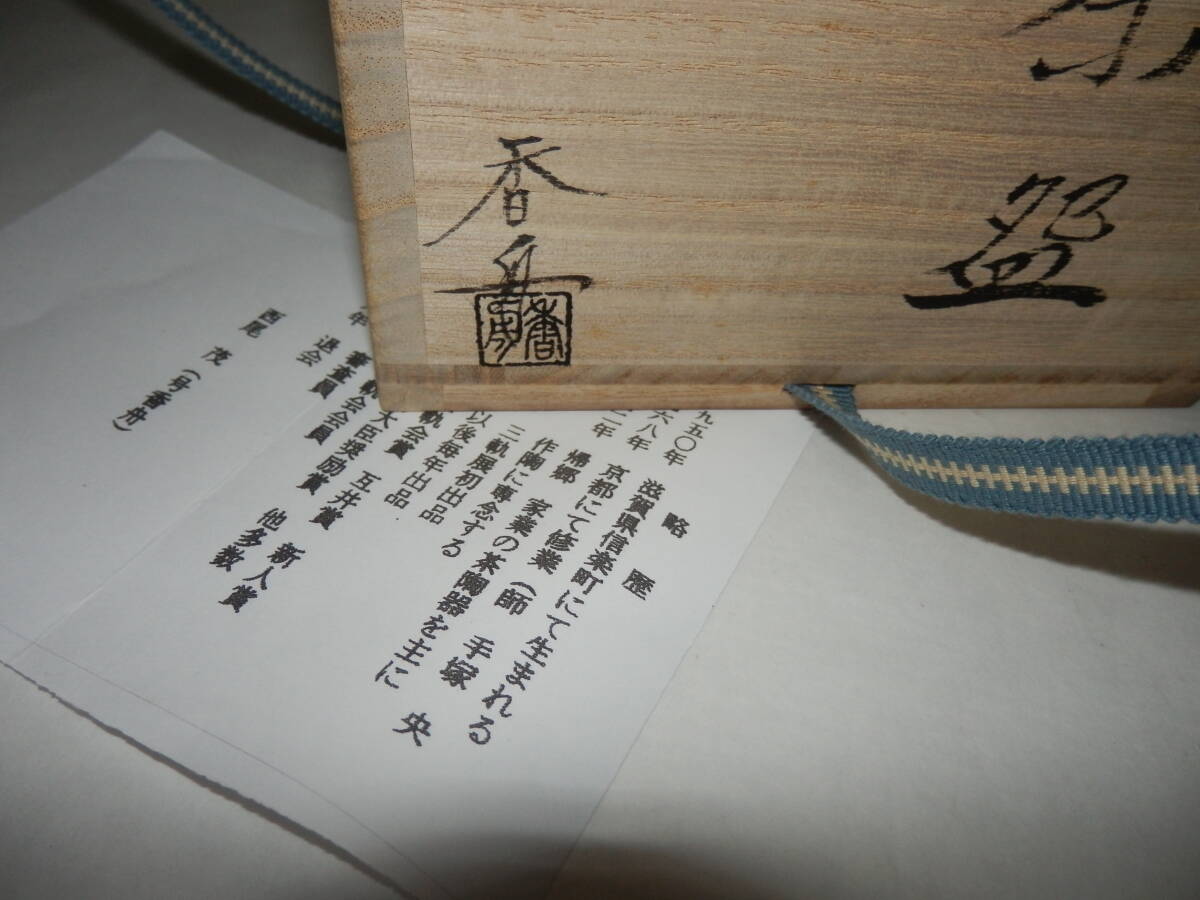 盌
香舟
香舟
略歴
九五〇年 滋賀県信楽町にて生まれる
六八年 京都にて修業(師 手塚 央
二年 帰郷 家業の茶陶器を主に
作陶に専念する
三軌展初出品
以後毎年出品
軌会賞
大臣奨励賞 互井賞 新人賞
軌会会員 他多数
年 審査員
退会
西尾 茂(号香舟)